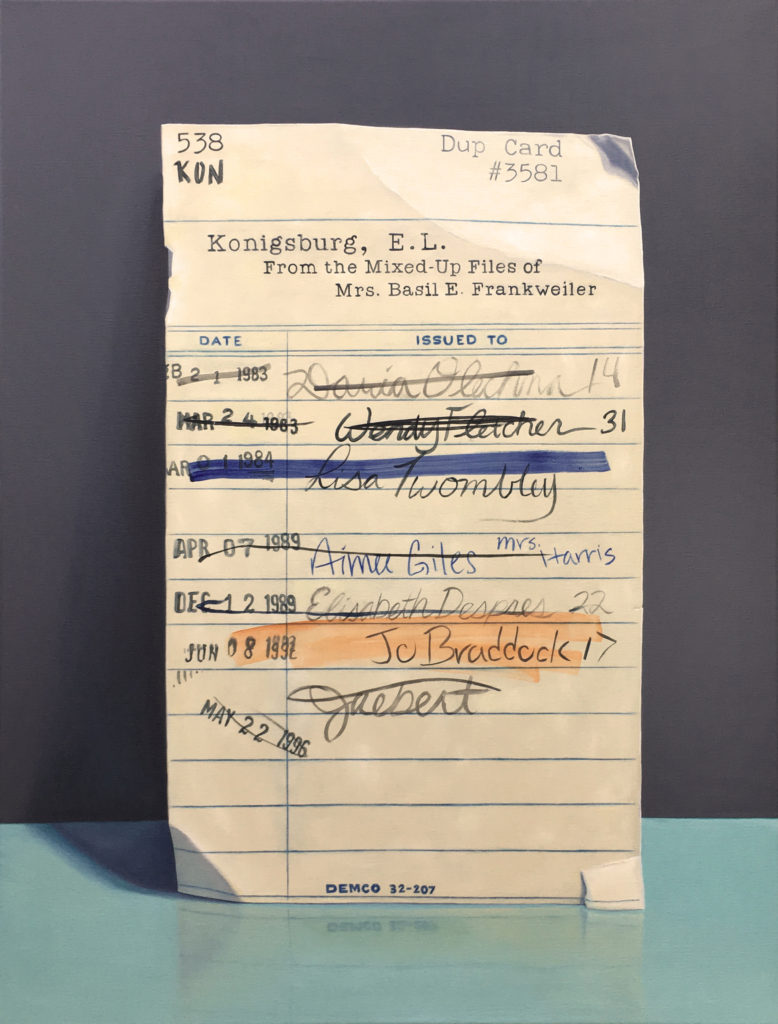 538
Dup Card
KON
#3581
Konigsburg, E.L.
From the Mixed-Up Files of
Mrs. Basil E. Frankweiler
DATE ISSUED TO
EB 2 1 1983 Daria 14
MAR 24 1983 Wendy Fletcher 31
AR 01 1984 Lisa Twombley
APR 07 1989 Aimee Giles mrs. Harris
DEC 12 1989 Elisabeth Despres 22
JUN 08 1992 Jo Braddock 17
MAY 22 1996 Jaebert
DEMCO 32-207